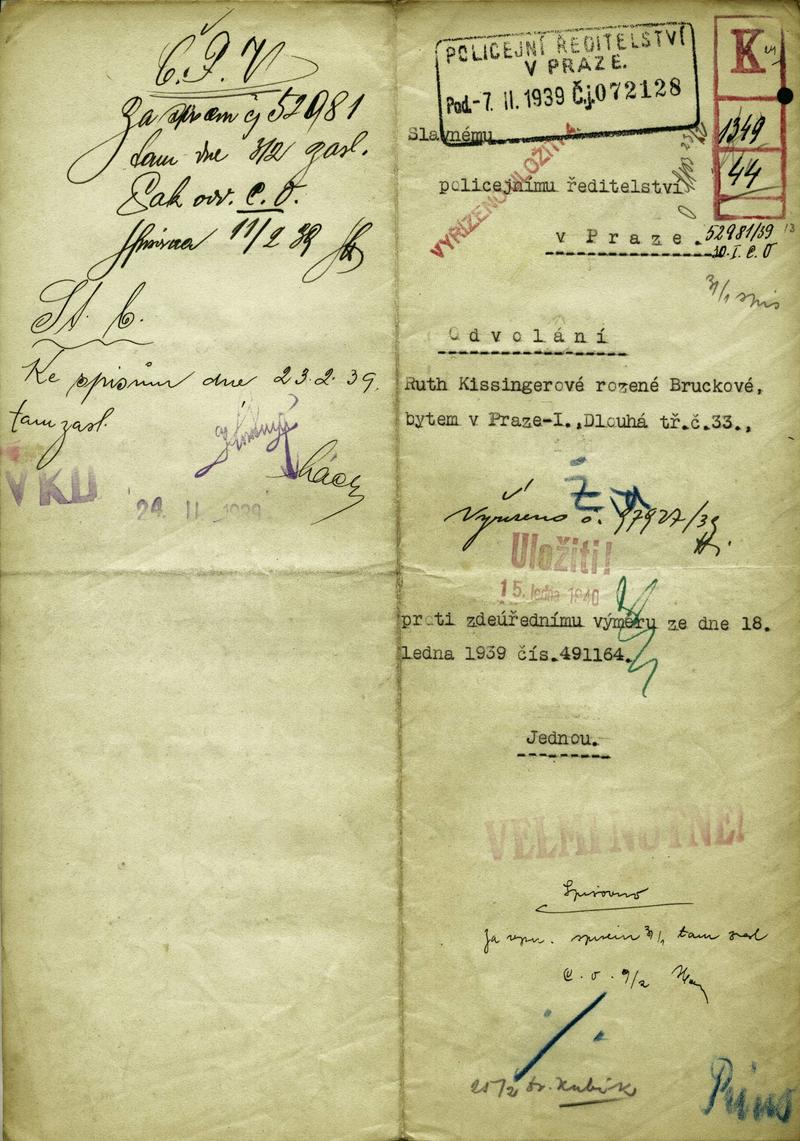 Č.P.V
za spisem čj 52981
tam dne 3/2 zasl.
Pak odv. C.O.
11/2 39
St. b.
Ke spisům dne 23.2.39.
tam zasl.
VKD
24. II. 1939
POLICEJNÍ ŘEDITELSTVÍ
V PRAZE.
Pod -7. II. 1939 Č.j. 072128
K
1349
44
Slavnému
policejnímu ředitelství
VYŘÍZENO ULOŽITI
v Praze.
52981/39
10.I.C.O
3/1 spis
Odvolání
Ruth Kissingerové rozené Bruckové,
bytem v Praze-I.,Dlouhá tř.č.33.,
Vyřízeno č. 97927/39
Uložiti!
15. ledna 1940
proti zdeúřednímu výměru ze dne 18.
ledna 1939 čís.491164.
Jednou.
VELMI NUTNÉ!
Spisovno
tam zasl
C.O. 9/2
25/2 Dr. Kubík